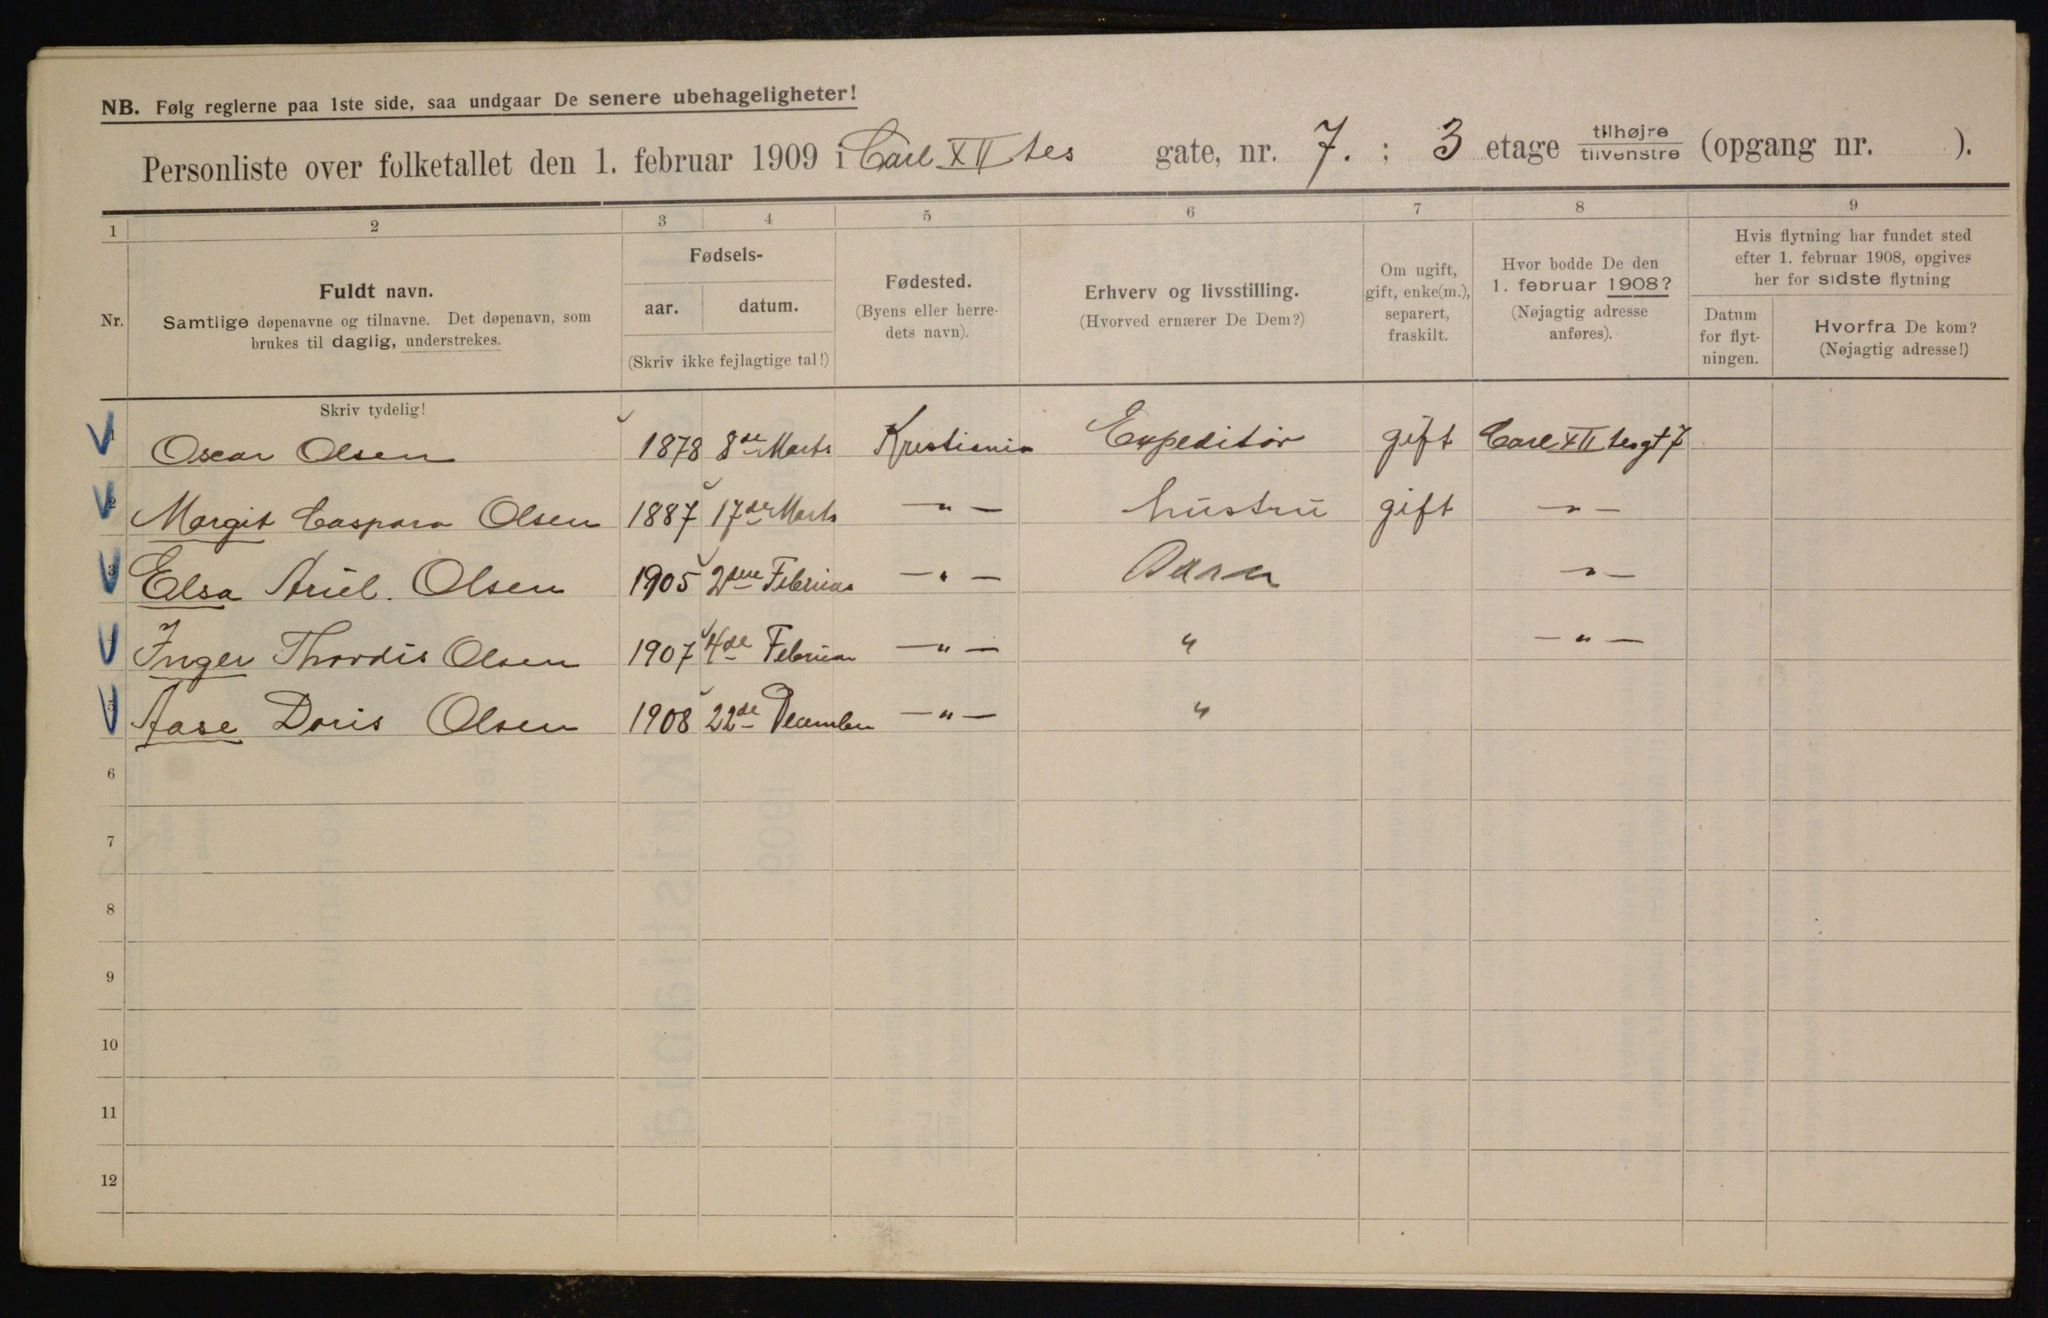 NB. Følg reglerne paa 1ste side, saa undgaar De senere ubehageligheter!
Personliste over folketallet den 1. februar 1909 i Carl XII tes gate, nr. 7. ; 3 etage tilhøjre / tilvenstre (opgang nr. ).
1 2 3 4 5 6 7 8 9
Nr.
Fuldt navn.
Samtlige døpenavne og tilnavne. Det døpenavn, som
brukes til daglig, understrekes.
Fødsels-
aar. datum.
(Skriv ikke fejlagtige tal!)
Fødested.
(Byens eller herre-
dets navn).
Erhverv og livsstilling.
(Hvorved ernærer De Dem?)
Om ugift,
gift, enke(m.),
separert,
fraskilt.
Hvor bodde De den
1. februar 1908?
(Nøjagtig adresse
anføres).
Hvis flytning har fundet sted
efter 1. februar 1908, opgives
her for sidste flytning
Datum
for flyt-
ningen.
Hvorfra De kom?
(Nøjagtig adresse!)
Skriv tydelig!
1 Oscar Olsen 1878 8de Marts Kristiania Expeditør gift Carl XII tesgt 7
2 Margit Caspara Olsen 1887 17de Marts —"— hustru gift —"—
3 Elsa Ariel. Olsen 1905 2den Februar —"— Barn —"—
4 Inger Thordis Olsen 1907 4de Februar —"— " —"—
5 Aase Doris Olsen 1908 22de December —"— "
6
7
8
9
10
11
12